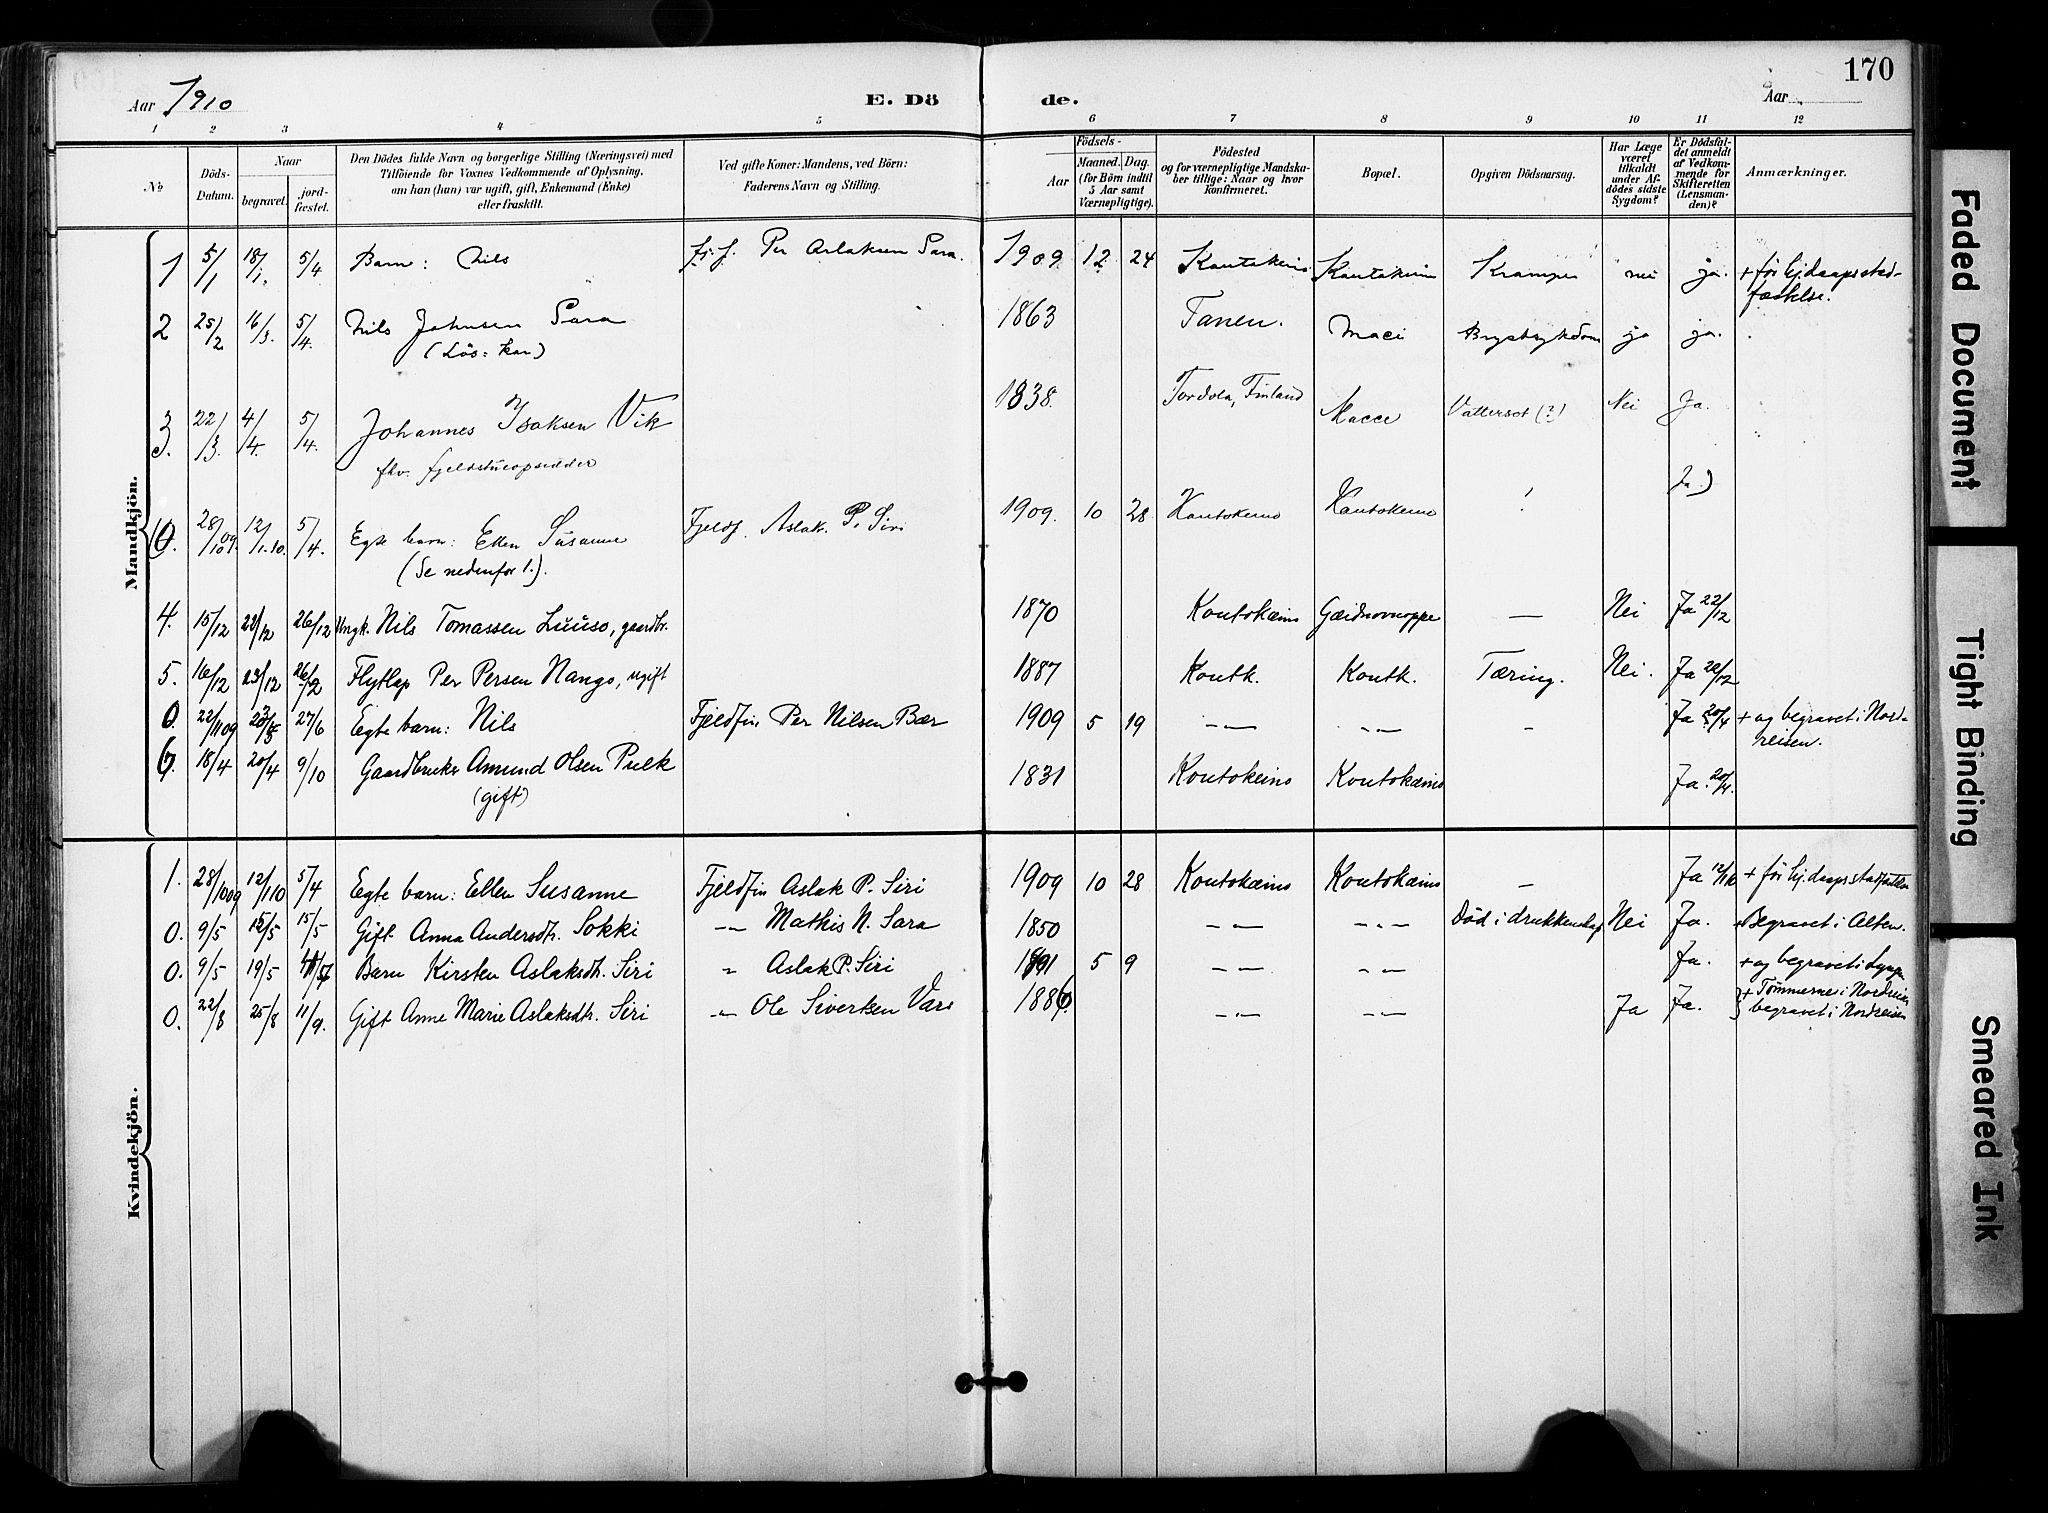 170
Aar 1910
E. Dö de.
Aar
1 2 3 4 5 6 7 8 9 10 11 12
No
Döds-Datum.
Naar
begravet.
jord-fæstet.
Den Dödes fulde Navn og borgerlige Stilling (Næringsvei) med
Tilföiende for Voxnes Vedkommende af Oplysning,
om han (hun) var ugift, gift, Enkemand (Enke)
eller fraskilt.
Ved gifte Koner: Mandens, ved Börn:
Faderens Navn og Stilling.
Födsels-
Aar
Maaned. Dag.
(for Börn indtil
5 Aar samt
Værnepligtige).
Födested
og for værnepligtige Mandska-
ber tillige: Naar og hvor
Konfirmeret.
Bopæl.
Opgiven Dödsaarsag.
Har Læge
været
tilkaldt
under Af-
dödes sidste
Sygdom?
Er Dödsfal-
det anmeldt
af Vedkom-
mende for
Skifteretten
(Lensman-
den)?
Anmærkninger.
Mandkjön.
1 5/1 18/1. 5/4 Barn: Nils Fj.f. Per Aslaksen Sara. 1909 12 24 Kautokeino Kautokeino Krampe nei ja. + før hj.daapsstad-
fæstelse.
2 25/2 16/3. 5/4. Nils Johnsen Sara 1863 Tanen. Maci Brystsykdom ja ja.
(Løs-kar)
3. 22/3. 4/4. 5/4. Johannes Isaksen Vik 1838. Tordola, Finland Macce Vattersot (?) Nei Ja.
fhv. fjeldstueopsidder
0. 28/10 09. 12/1.10. 5/4. Egte barn: Ellen Susanne Fjeldf. Aslak P. Siri 1909. 10 28. Kautokeino Kautokeino ! Ja.)
(Se nedenfor 1.).
4. 15/12 22/12 26/12 Ungk. Nils Tomassen Luuso, gaardbr. 1870 Koutokæino Gæidnovuoppe — Nei Ja 22/12
5. 16/12 23/12 26/12 Flytlap Per Persen Nango, ugift 1887 Koutk. Koutk. Tæring. Nei. Ja 20/12
0. 22/11 09 27/6 Egte barn: Nils Fjeldfin Per Nilsen Bær 1909 5 19 —"— —"— - Ja 20/4 + og begravet i Nord-
reisen.
6. 18/4 20/4 9/10 Gaardbruker Amund Olsen Pulk 1831 Koutokeino Koutokæino Ja. 20/4.
(gift)
Kvindekjön.
1. 28/10 09 12/1 10 5/4 Egte barn: Ellen Susanne Fjeldfin Aslak P. Siri 1909 10 28 Koutokæino Koutokæino — Ja 12/1 10 + før hj.daapsstadfæstelse
0. 9/5 15/5 15/5 Gift Anna Andersdtr. Sokki —"— Mathis N. Sara 1850 —"— —"— Død i drukkenskap Nei Ja. Begravet i Alten.
0. 9/5 19/5 Barn Kirsten Aslaksdtr. Siri " Aslak P. Siri 5 9 —"— —"— Ja. + og begravet i Lyngen
0. 22/8 25/8 11/9. Gift Anne Marie Aslaksdtr. Siri —"— Ole Sivertsen Vars 1886. —"— —"— Ja Ja. + Tømmernes i Nordreisen
begravet i Nordreisen
Faded Document
Tight Binding
Smeared Ink